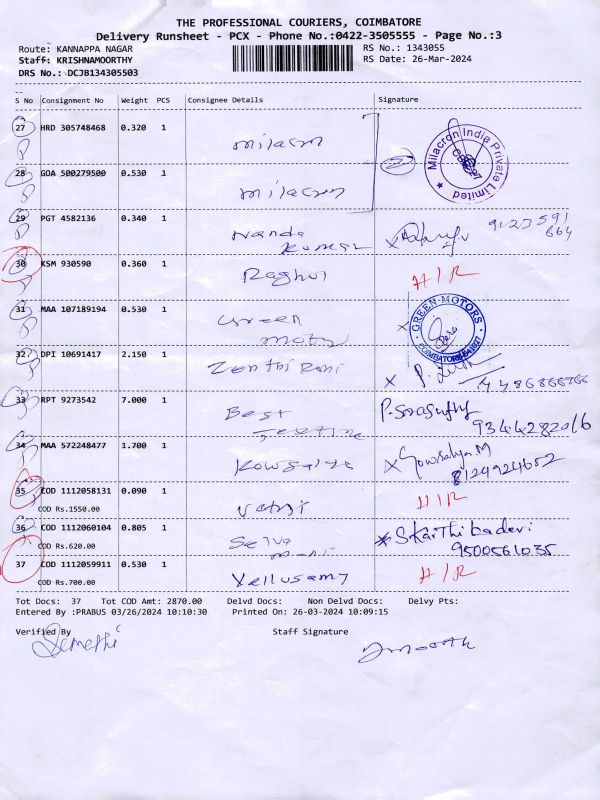 THE PROFESSIONAL COURIERS, COIMBATORE
Delivery Runsheet - PCX - Phone No.:0422-3505555 - Page No.:3
Route: KANNAPPA NAGAR RS No.: 1343055
Staff: KRISHNAMOORTHY RS Date: 26-Mar-2024
DRS No.: DCJB134305503
S No Consignment No Weight PCS Consignee Details Signature
27 HRD 305748468 0.320 1 milacrn
Milacron India Private Limited
28 GOA 500279500 0.530 1 milacrn
29 PGT 4582136 0.340 1 Nanda Kumar
30 KSM 930590 0.360 1 Raghul H/R
31 MAA 107189194 0.530 1 Green motors
GREEN MOTORS
32 DPI 10691417 2.150 1 Zenthi Rani
33 RPT 9273542 7.000 1 Best
9344282016
34 MAA 572248477 1.700 1 Kowsalya Gowsalya M
8124924652
35 COD 1112058131 0.090 1 H/R
COD Rs.1550.00
36 COD 1112060104 0.805 1 Selva mani
COD Rs.620.00 9500561035
37 COD 1112059911 0.530 1 Vellusamy H/R
COD Rs.700.00
Tot Docs: 37 Tot COD Amt: 2870.00 Delvd Docs: Non Delvd Docs: Delvy Pts:
Entered By :PRABUS 03/26/2024 10:10:30 Printed On: 26-03-2024 10:09:15
Verified By Staff Signature